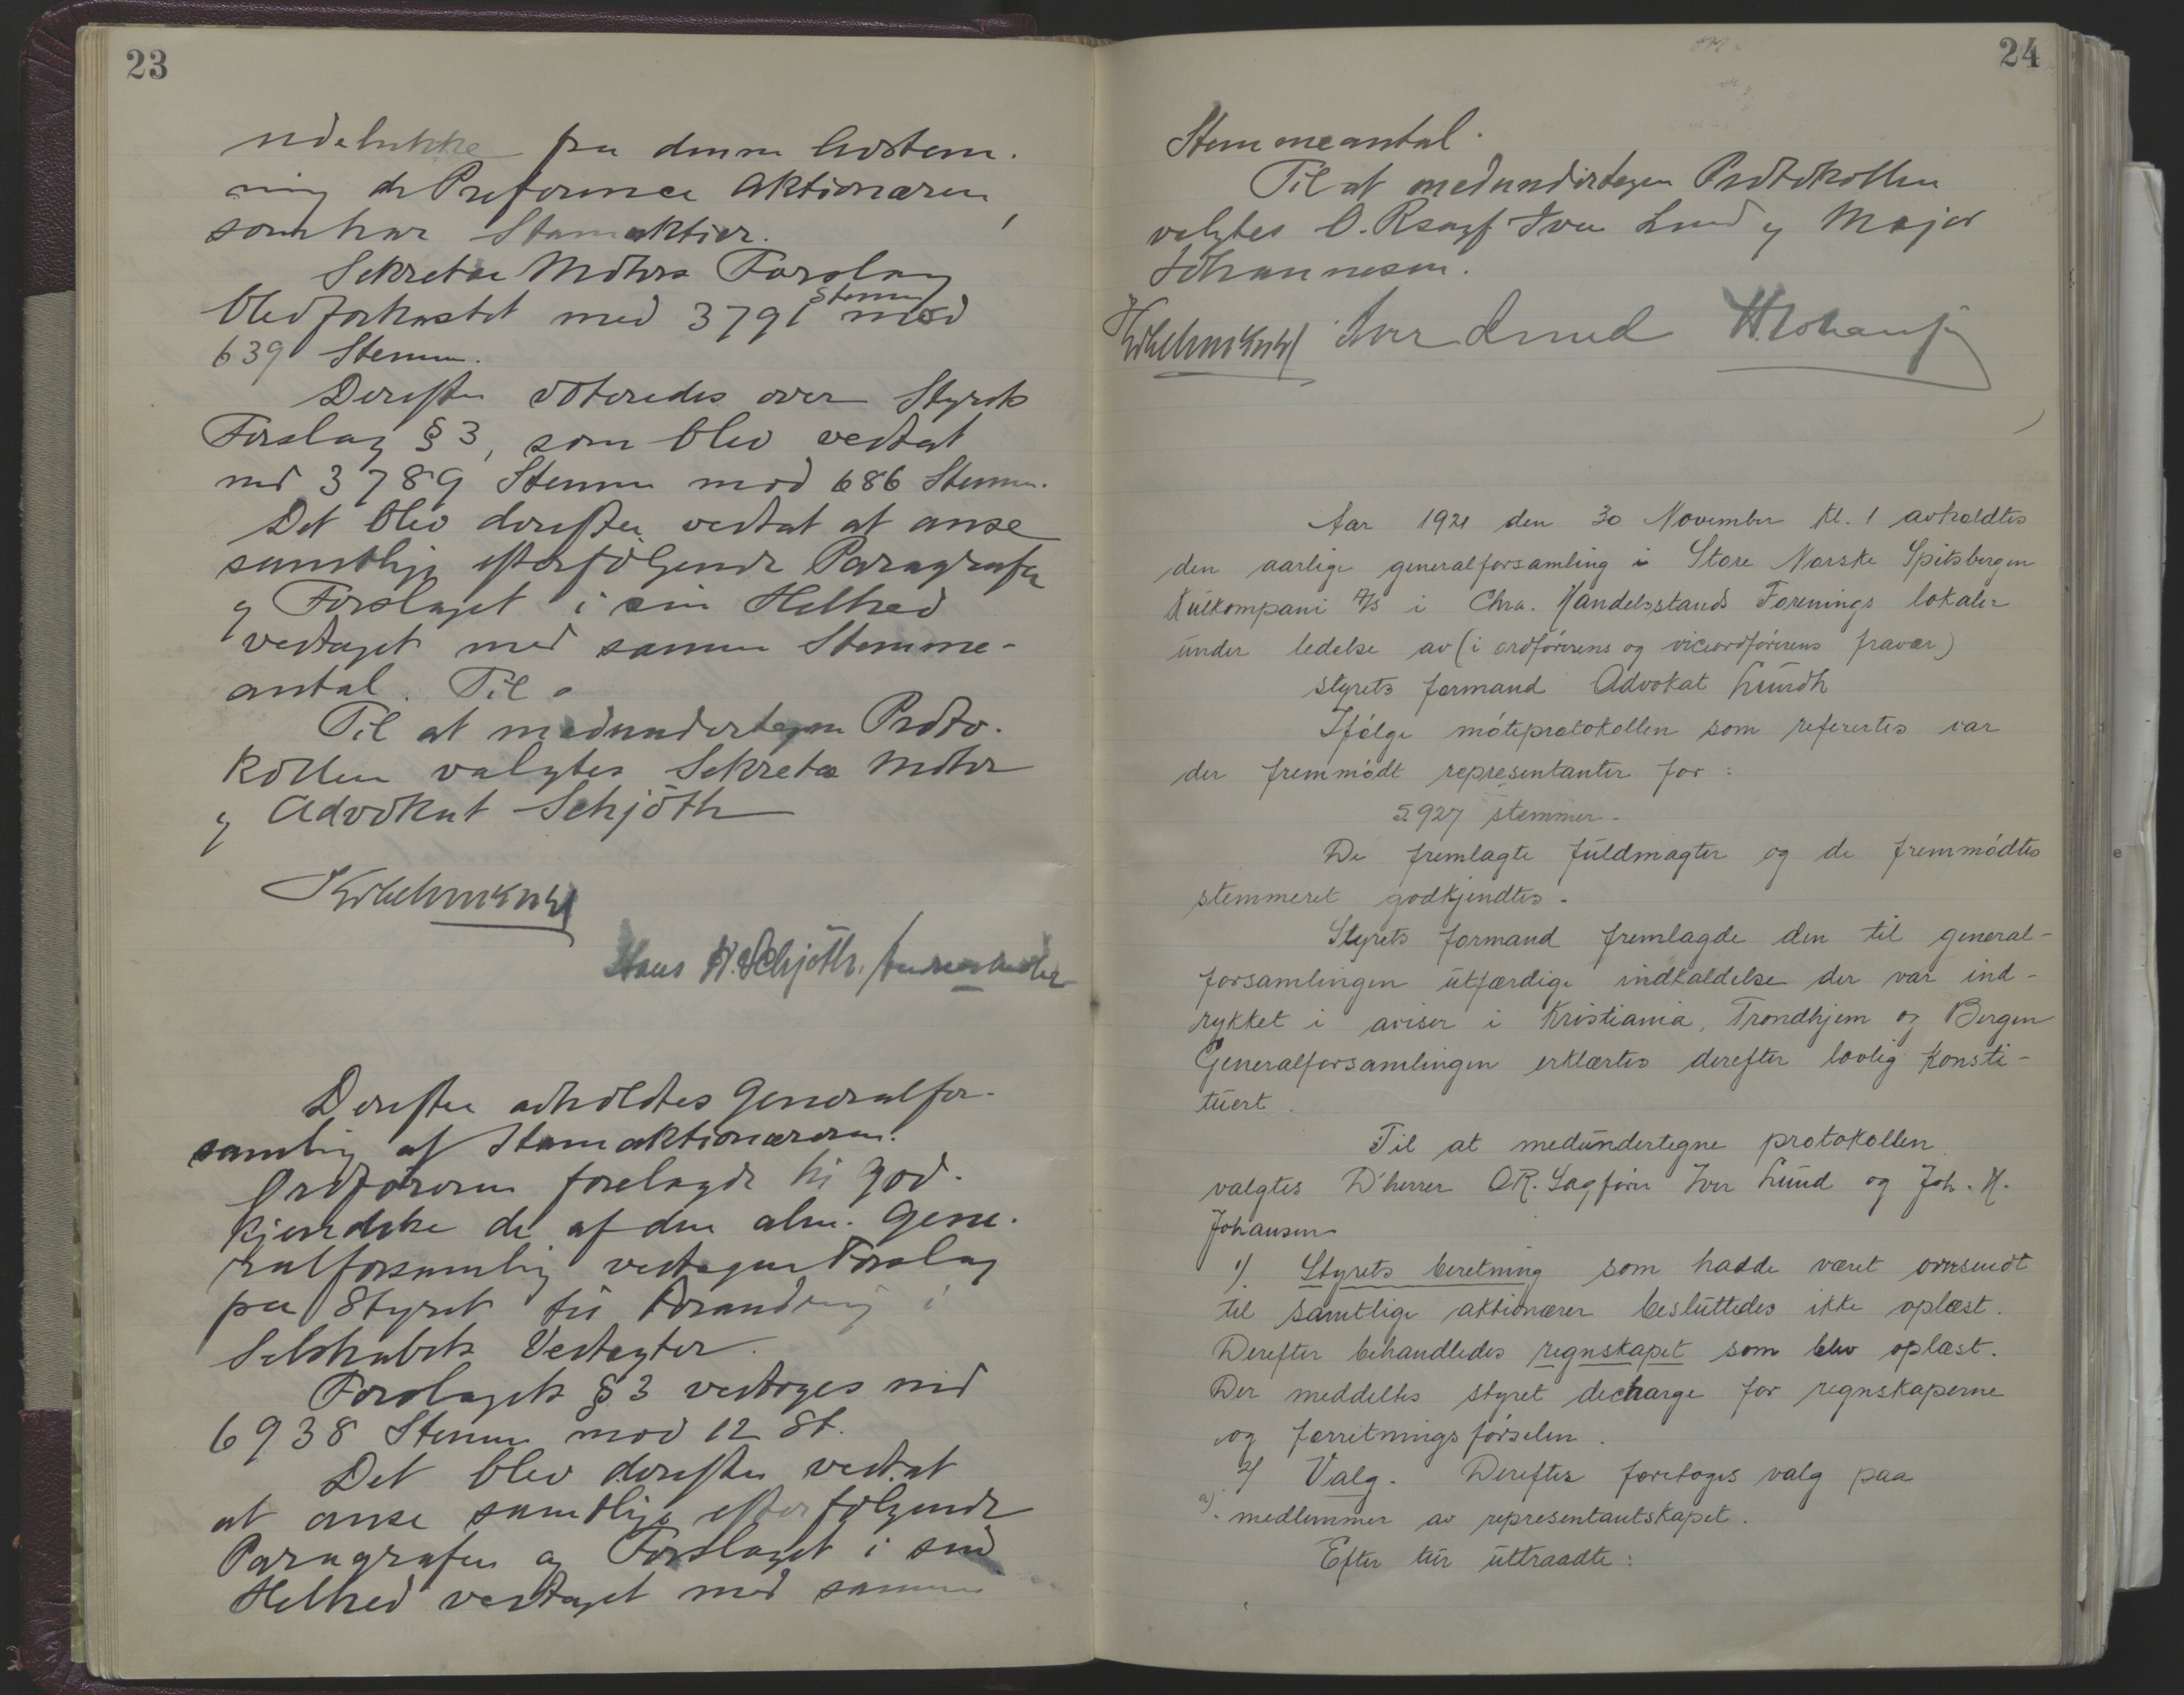 23
udelukke fra denne Avstem-
ning de Preference Aktionærer,
som har Stamaktier.
Sekretær Mohrs Forslag
blev forkastet med 3791 Stemmer mod
639 Stemmer.
Derefter voteredes over Styrets
Forslag § 3, som blev vedtat
med 3789 Stemmer mod 686 Stemmer.
Det blev derefter vedtat at anse
samtlige efterfølgende Paragrafer
og Forslaget i sin Helhed
vedtaget med samme Stemme-
antal. Til
Til at medundertegne Proto-
kollen valgtes Sekretær Mohr
og Advokat Schjöth
Hans H. Schjöth.
Derefter avholdtes Generalfor-
samling af Stamaktionærerne.
Ordføreren forelagde til God-
kjendelse de af den alm. Gene-
ralforsamling vedtagne Forslag
fra Styret til Forandring i
Selskabets Vedtægter.
Forslagets § 3 vedtoges med
6938 Stemmer mod 12 St.
Det blev derefter vedtat
at anse samtlige efterfølgende
Paragrafer og Forslaget i sin
Helhed vedtaget med samme
24
Stemmeantal.
Til at medundertegne Protokollen
valgtes O.Rsagf Iver Lund og Major
Johannesen.
Iver Lund
Aar 1921 den 30 November kl. 1 avholdtes
den aarlige generalforsamling i Store Norske Spitsbergen
Kulkompani A/S i Chra. Handelsstands Forenings lokaler
under ledelse av (i ordførerens og viceordførerens fravær)
styrets formand Advokat Lundh
Ifølge møteprotokollen som refertes var
der fremmødt representanter for:
5927 stemmer.
De fremlagte fuldmagter og de fremmødtes
stemmeret godkjendtes.
Styrets formand fremlagde den til general-
forsamlingen utfærdige indkaldelse der var ind-
rykket i aviser i Kristiania, Trondhjem og Bergen
Generalforsamlingen erklærtes derefter lovlig konsti-
tuert.
Til at medundertegne protokollen
valgtes D'herrer OR. Sagfører Iver Lund og Joh. H.
Johansen
1). Styrets beretning som hadde været oversendt
til samtlige aktionærer besluttedes ikke oplæst.
Derefter behandledes regnskapet som blev oplæst.
Der meddeltes styret decharge for regnskaperne
og forretningsførselen.
2) Valg. Derefter foretoges valg paa
a). medlemmer av representantskapet.
Efter tur uttraadte: